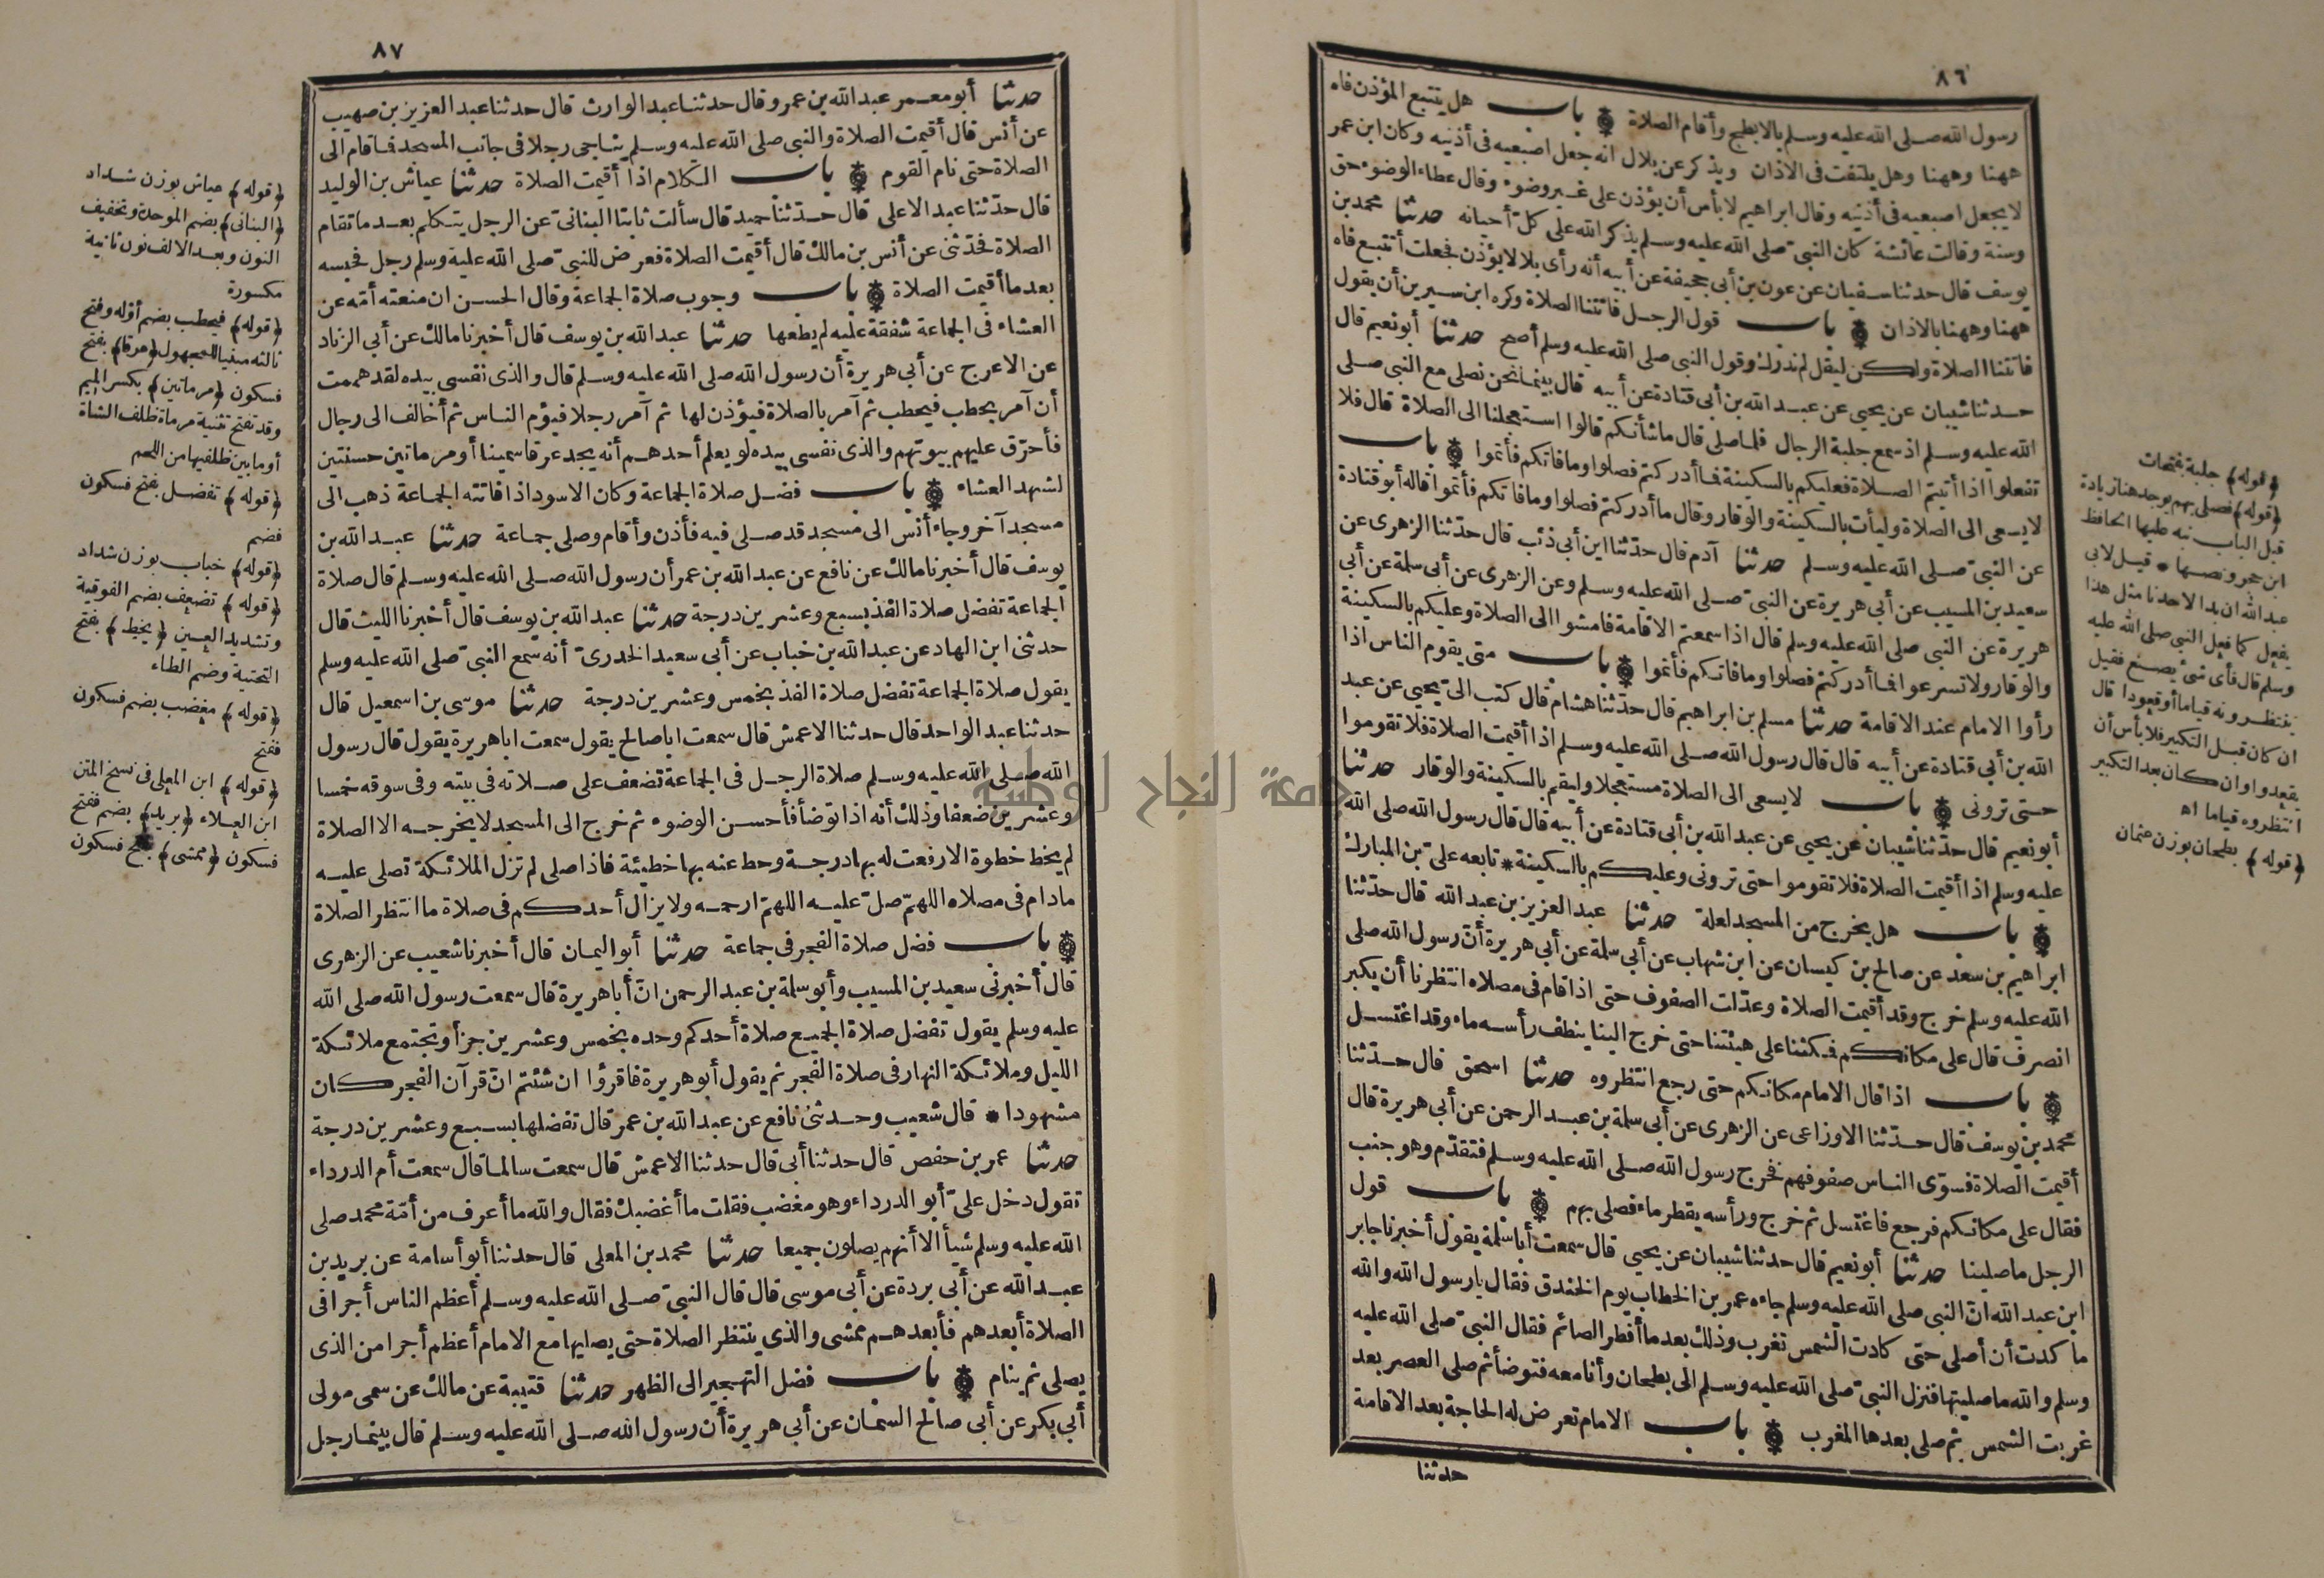 ٨٦
رسول الله صلى الله عليه وسلم بالابطح وأقام الصلاة باب هل يتتبع المؤذن فاه
ههنا وههنا وهل يلتفت فى الاذان ويذكر عن بلال انه جعل اصبعيه فى أذنيه وكان ابن عمر
لا يجعل اصبعيه فى أذنيه وقال ابراهيم لا بأس أن يؤذن على غير وضوء وقال عطاء الوضوء حق
وسنة وقالت عائشة كان النبى صلى الله عليه وسلم يذكر الله على كل أحيانه حدثنا محمد بن
يوسف قال حدثنا سفيان عن عون بن أبى جحيفة عن أبيه أنه رأى بلالا يؤذن فجعلت أتتبع فاه
ههنا وههنا بالاذان باب قول الرجل فاتتنا الصلاة وكره ابن سيرين أن يقول
فاتتنا الصلاة ولكن ليقل لم ندرك وقول النبى صلى الله عليه وسلم أصح حدثنا أبو نعيم قال
حدثنا شيبان عن يحيى عن عبد الله بن أبى قتادة عن أبيه قال بينما نحن نصلى مع النبى صلى
الله عليه وسلم اذ سمع جلبة الرجال فلما صلى قال ما شأنكم قالوا استعجلنا الى الصلاة قال فلا
تفعلوا اذا أتيتم الصلاة فعليكم بالسكينة فما أدركتم فصلوا وما فاتكم فأتموا باب
لا يسعى الى الصلاة وليأت بالسكينة والوقار وقال ما أدركتم فصلوا وما فاتكم فأتموا قاله أبو قتادة
عن النبى صلى الله عليه وسلم حدثنا آدم قال حدثنا ابن أبى ذئب قال حدثنا الزهرى عن
سعيد بن المسيب عن أبى هريرة عن النبى صلى الله عليه وسلم وعن الزهرى عن أبى سلمة عن أبى
هريرة عن النبى صلى الله عليه وسلم قال اذا سمعتم الاقامة فامشوا الى الصلاة وعليكم بالسكينة
والوقار ولا تسرعوا فما أدركتم فصلوا وما فاتكم فأتموا باب متى يقوم الناس اذا
رأوا الامام عند الاقامة حدثنا مسلم بن ابراهيم قال حدثنا هشام قال كتب الى يحيى عن عبد
الله بن أبى قتادة عن أبيه قال قال رسول الله صلى الله عليه وسلم اذا أقيمت الصلاة فلا تقوموا
حتى ترونى باب لا يسعى الى الصلاة مستعجلا وليقم بالسكينة والوقار حدثنا
أبو نعيم قال حدثنا شيبان عن يحيى عن عبد الله بن أبى قتادة عن أبيه قال قال رسول الله صلى الله
عليه وسلم اذا أقيمت الصلاة فلا تقوموا حتى ترونى وعليكم بالسكينة * تابعه على بن المبارك
باب هل يخرج من المسجد لعلة حدثنا عبد العزيز بن عبد الله قال حدثنا
ابراهيم بن سعد عن صالح بن كيسان عن ابن شهاب عن أبى سلمة عن أبى هريرة أن رسول الله صلى
الله عليه وسلم خرج وقد أقيمت الصلاة وعدلت الصفوف حتى اذا قام فى مصلاه انتظرنا أن يكبر
انصرف قال على مكانكم فمكثنا على هيئتنا حتى خرج الينا ينطف رأسه ماء وقد اغتسل
باب اذا قال الامام مكانكم حتى رجع انتظروه حدثنا اسحق قال حدثنا
محمد بن يوسف قال حدثنا الاوزاعى عن الزهرى عن أبى سلمة بن عبد الرحمن عن أبى هريرة قال
أقيمت الصلاة فسوى الناس صفوفهم فخرج رسول الله صلى الله عليه وسلم فتقدم وهو جنب
فقال على مكانكم فرجع فاغتسل ثم خرج ورأسه يقطر ماء فصلى بهم باب قول
الرجل ما صلينا حدثنا أبو نعيم قال حدثنا شيبان عن يحيى قال سمعت أبا سلمة يقول أخبرنا جابر
ابن عبد الله ان النبى صلى الله عليه وسلم جاءه عمر بن الخطاب يوم الخندق فقال يا رسول الله والله
ما كدت أن أصلى حتى كادت الشمس تغرب وذلك بعد ما أفطر الصائم فقال النبى صلى الله عليه
وسلم والله ما صليتها فنزل النبى صلى الله عليه وسلم الى بطحان وأنا معه فتوضأ ثم صلى العصر بعد
غربت الشمس ثم صلى بعدها المغرب باب الامام تعرض له الحاجة بعد الاقامة
حدثنا
﴿قوله﴾ جلبة بفتحات
﴿قوله﴾ فصلى بهم يوجد هنا زيادة
قبل الباب نبه عليها الحافظ
ابن حجر ونصها * قيل لابى
عبد الله ان بدا لاحدنا مثل هذا
يفعل كما فعل النبى صلى الله عليه
وسلم قال فأى شئ يصنع فقيل
ينتظرونه قياما أو قعودا قال
ان كان قبل التكبير فلا بأس أن
يقعدوا وان كان بعد التكبير
انتظروه قياما اه
﴿قوله﴾ بطحان بوزن عثمان
٨٧
حدثنا أبو معمر عبد الله بن عمرو قال حدثنا عبد الوارث قال حدثنا عبد العزيز بن صهيب
عن أنس قال أقيمت الصلاة والنبى صلى الله عليه وسلم يناجى رجلا فى جانب المسجد فما قام الى
الصلاة حتى نام القوم باب الكلام اذا أقيمت الصلاة حدثنا عياش بن الوليد
قال حدثنا عبد الاعلى قال حدثنا حميد قال سألت ثابتا البنانى عن الرجل يتكلم بعد ما تقام
الصلاة فحدثنى عن أنس بن مالك قال أقيمت الصلاة فعرض للنبى صلى الله عليه وسلم رجل فحبسه
بعد ما أقيمت الصلاة باب وجوب صلاة الجماعة وقال الحسن ان منعته أمه عن
العشاء فى الجماعة شفقة عليه لم يطعها حدثنا عبد الله بن يوسف قال أخبرنا مالك عن أبى الزناد
عن الاعرج عن أبى هريرة أن رسول الله صلى الله عليه وسلم قال والذى نفسى بيده لقد هممت
أن آمر بحطب فيحطب ثم آمر بالصلاة فيؤذن لها ثم آمر رجلا فيؤم الناس ثم أخالف الى رجال
فأحرق عليهم بيوتهم والذى نفسى بيده لو يعلم أحدهم أنه يجد عرقا سمينا أو مرماتين حسنتين
لشهد العشاء باب فضل صلاة الجماعة وكان الاسود اذا فاتته الجماعة ذهب الى
مسجد آخر وجاء أنس الى مسجد قد صلى فيه فأذن وأقام وصلى جماعة حدثنا عبد الله بن
يوسف قال أخبرنا مالك عن نافع عن عبد الله بن عمر أن رسول الله صلى الله عليه وسلم قال صلاة
الجماعة تفضل صلاة الفذ بسبع وعشرين درجة حدثنا عبد الله بن يوسف قال أخبرنا الليث قال
حدثنى ابن الهاد عن عبد الله بن خباب عن أبى سعيد الخدرى أنه سمع النبى صلى الله عليه وسلم
يقول صلاة الجماعة تفضل صلاة الفذ بخمس وعشرين درجة حدثنا موسى بن اسمعيل قال
حدثنا عبد الواحد قال حدثنا الاعمش قال سمعت ابا صالح يقول سمعت ابا هريرة يقول قال رسول
الله صلى الله عليه وسلم صلاة الرجل فى الجماعة تضعف على صلاته فى بيته وفى سوقه خمسا
وعشرين ضعفا وذلك أنه اذا توضأ فأحسن الوضوء ثم خرج الى المسجد لا يخرجه الا الصلاة
لم يخط خطوة الا رفعت له بها درجة وحط عنه بها خطيئة فاذا صلى لم تزل الملائكة تصلى عليه
ما دام فى مصلاه اللهم صل عليه اللهم ارحمه ولا يزال أحدكم فى صلاة ما انتظر الصلاة
باب فضل صلاة الفجر فى جماعة حدثنا أبو اليمان قال أخبرنا شعيب عن الزهرى
قال أخبرنى سعيد بن المسيب وأبو سلمة بن عبد الرحمن ان أبا هريرة قال سمعت رسول الله صلى الله
عليه وسلم يقول تفضل صلاة الجميع صلاة أحدكم وحده بخمس وعشرين جزأ وتجتمع ملائكة
الليل وملائكة النهار فى صلاة الفجر ثم يقول أبو هريرة فاقرؤا ان شئتم ان قرآن الفجر كان
مشهودا * قال شعيب وحدثنى نافع عن عبد الله بن عمر قال تفضلها بسبع وعشرين درجة
حدثنا عمر بن حفص قال حدثنا أبى قال حدثنا الاعمش قال سمعت سالما قال سمعت أم الدرداء
تقول دخل على أبو الدرداء وهو مغضب فقلت ما أغضبك فقال والله ما أعرف من أمة محمد صلى
الله عليه وسلم شيأ الا أنهم يصلون جميعا حدثنا محمد بن المعلى قال حدثنا أبو أسامة عن بريد بن
عبد الله عن أبى بردة عن أبى موسى قال قال النبى صلى الله عليه وسلم أعظم الناس أجرا فى
الصلاة أبعدهم فأبعدهم ممشى والذى ينتظر الصلاة حتى يصليها مع الامام أعظم أجرا من الذى
يصلى ثم ينام باب فضل التهجير الى الظهر حدثنا قتيبة عن مالك عن سمى مولى
أبى بكر عن أبى صالح السمان عن أبى هريرة أن رسول الله صلى الله عليه وسلم قال بينما رجل
﴿قوله﴾ عياش بوزن شداد
﴿البنانى﴾ بضم الموحدة وتخفيف
النون وبعد الالف نون ثانية
مكسورة
﴿قوله﴾ فيحطب بضم أوله وفتح
ثالثه مبنيا للمجهول ﴿عرقا﴾ بفتح
فسكون ﴿مرماتين﴾ بكسر الميم
وقد تفتح تثنية مرماة ظلف الشاة
أو ما بين ظلفيها من اللحم
﴿قوله﴾ تفضل بفتح فسكون
فضم
﴿قوله﴾ خباب بوزن شداد
﴿قوله﴾ تضعف بضم الفوقية
وتشديد العين ﴿يخط﴾ بفتح
التحتية وضم الطاء
﴿قوله﴾ مغضب بضم فسكون
ففتح
﴿قوله﴾ ابن المعلى فى نسخ المتن
ابن العلاء ﴿بريد﴾ بضم ففتح
فسكون ﴿ممشى﴾ بفتح فسكون
جامعة النجاح الوطنية